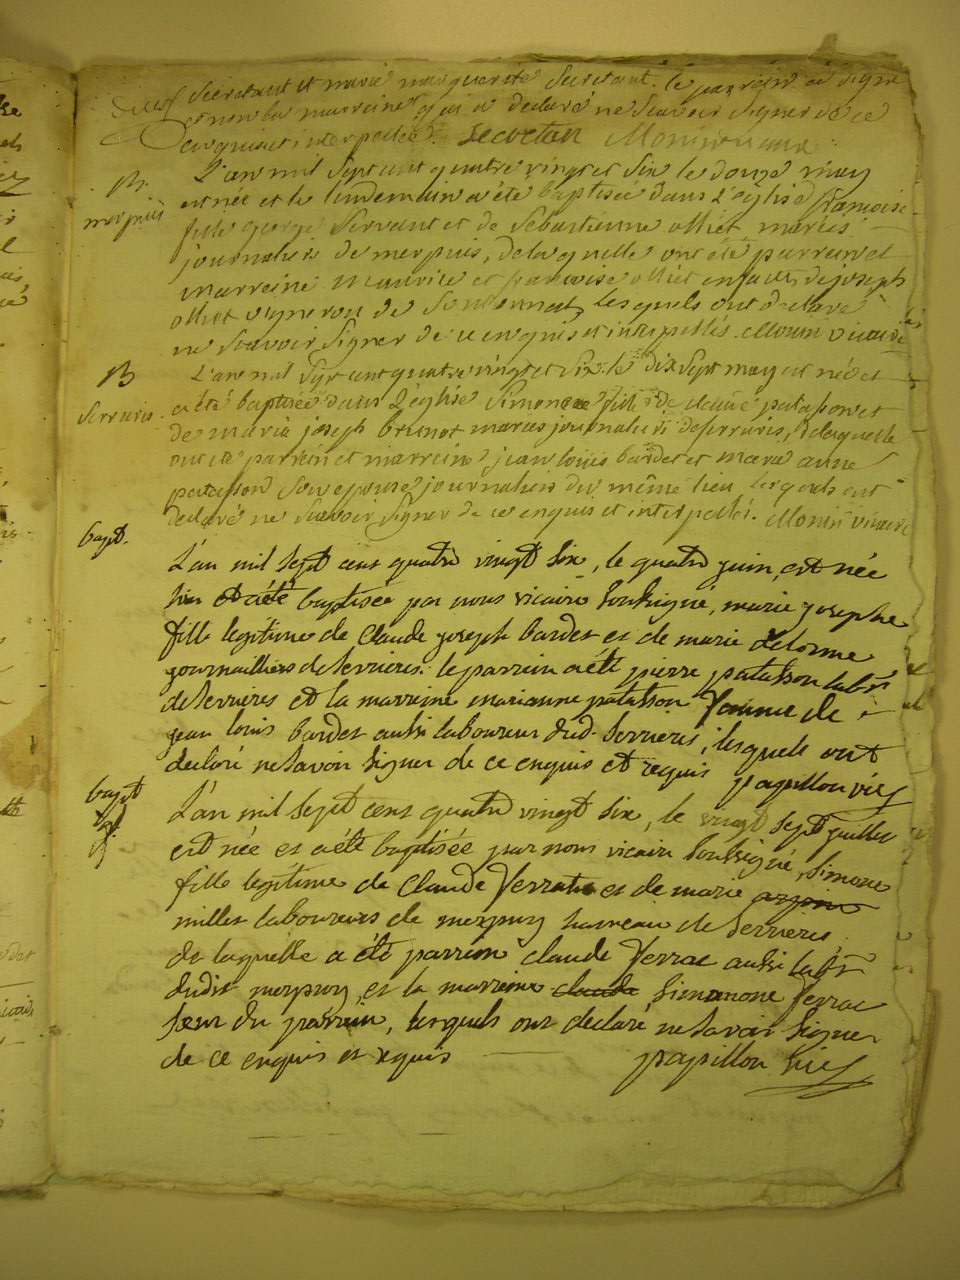 Secretant et marie marguerite Secretant. le parrein a signé
et non la marreine qui a declaré ne Scavoir Signer de ce
enquis et interpellée. Secretan Monin vicaire
B. L'an mil Sept cent quatre vingt et Six le douze may
merpuis est née et le lendemain a été baptisée dans L'église françoise
fille george Servant et de Sebastienne olliet mariés
journaliers de merpuis, de laquelle ont été parrein et
marreine Maurice et françoise olliet enfants de joseph
olliet vigneron de Lesquels ont declaré
ne Scavoir Signer de ce enquis et interpellés. Monin vicaire
B L'an mil Sept cent quatre vingt et Six le dix Sept may est née et
Serrieres a été baptisée dans L'église Simone fille de claude patasson et
de marie joseph brunot mariés journaliers de serrieres, de laquelle
ont été parrein et marreine jean louis bardet et marie anne
patasson Son epouse journaliers du même lieu Lesquels ont
declaré ne Scavoir Signer de ce enquis et interpellés. Monin vicaire
bapt.
L'an mil Sept cens quatre vingt Six, le quatre juin est née
et a été baptisée par nous vicaire Soussigné, marie josephe
fille legitime de Claude joseph bardet et de marie delorme
journailliers de Serrieres: le parrein a été pierre patasson labr
de Serrieres et la marreine marianne patasson femme de
jean louis bardet aussi laboureur dud. Serrieres, lesquels ont
declaré ne Savoir Signer de ce enquis et requis papillon vic
bapt L'an mil Sept cens quatre vingt Six, le vingt Sept juillet
est née et a été baptisée par nous vicaire Soussigné, Simone
fille legitime de Claude ferrat et de marie
millet laboureurs de merpuy hameau de Serrieres
de laquelle a été parrein claude ferrat aussi labr
dudit merpuy et la marreine claude Simonone ferrat
Sœur du parrein, lesquels ont declaré ne Savoir Signer
de ce enquis et requis papillon vic